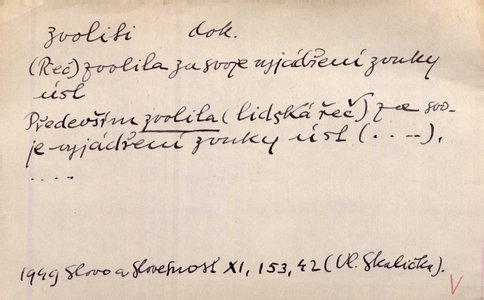 zvoliti dok.
(Řeč) zvolila za svoje vyjádření zvuky
úst
Především zvolila (lidská řeč) za svo-
je vyjádření zvuky úst (. . . .),
. . . .
1949 Slovo a Slovesnost XI, 153, 42 (Vl. Skalička).
V